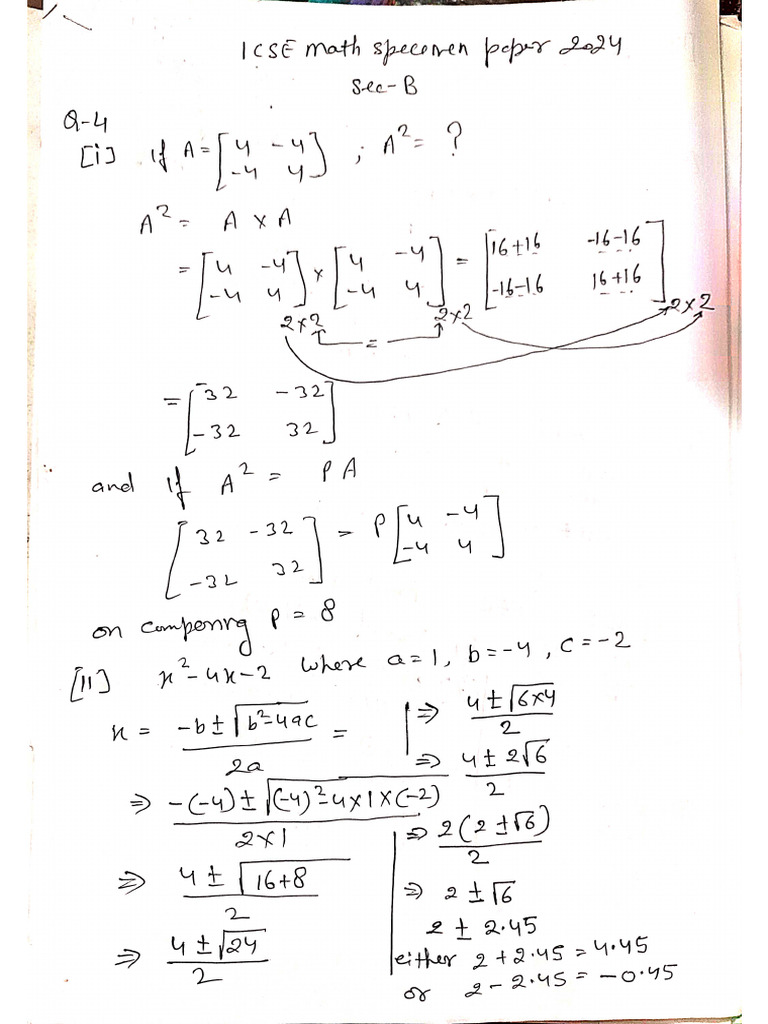 ICSE math specimen paper 2024
Sec-B
Q-4
[i] If A = [4 -4; -4 4] ; A² = ?
A² = A × A
= [4 -4; -4 4] × [4 -4; -4 4] = [16+16 -16-16; -16-16 16+16]
2×2 = 2×2 2×2
= [32 -32; -32 32]
and if A² = PA
[32 -32; -32 32] = P[4 -4; -4 4]
on compering P = 8
[II] x²-4x-2 where a=1, b=-4, c=-2
x = (-b±√(b²-4ac))/2a =
⇒ (-(-4)±√((-4)²-4×1×(-2)))/(2×1)
⇒ (4±√(16+8))/2
⇒ (4±√24)/2
⇒ (4±√(6×4))/2
⇒ (4±2√6)/2
⇒ 2(2±√6)/2
⇒ 2±√6
2 ± 2.45
either 2+2.45 = 4.45
or 2-2.45 = -0.45